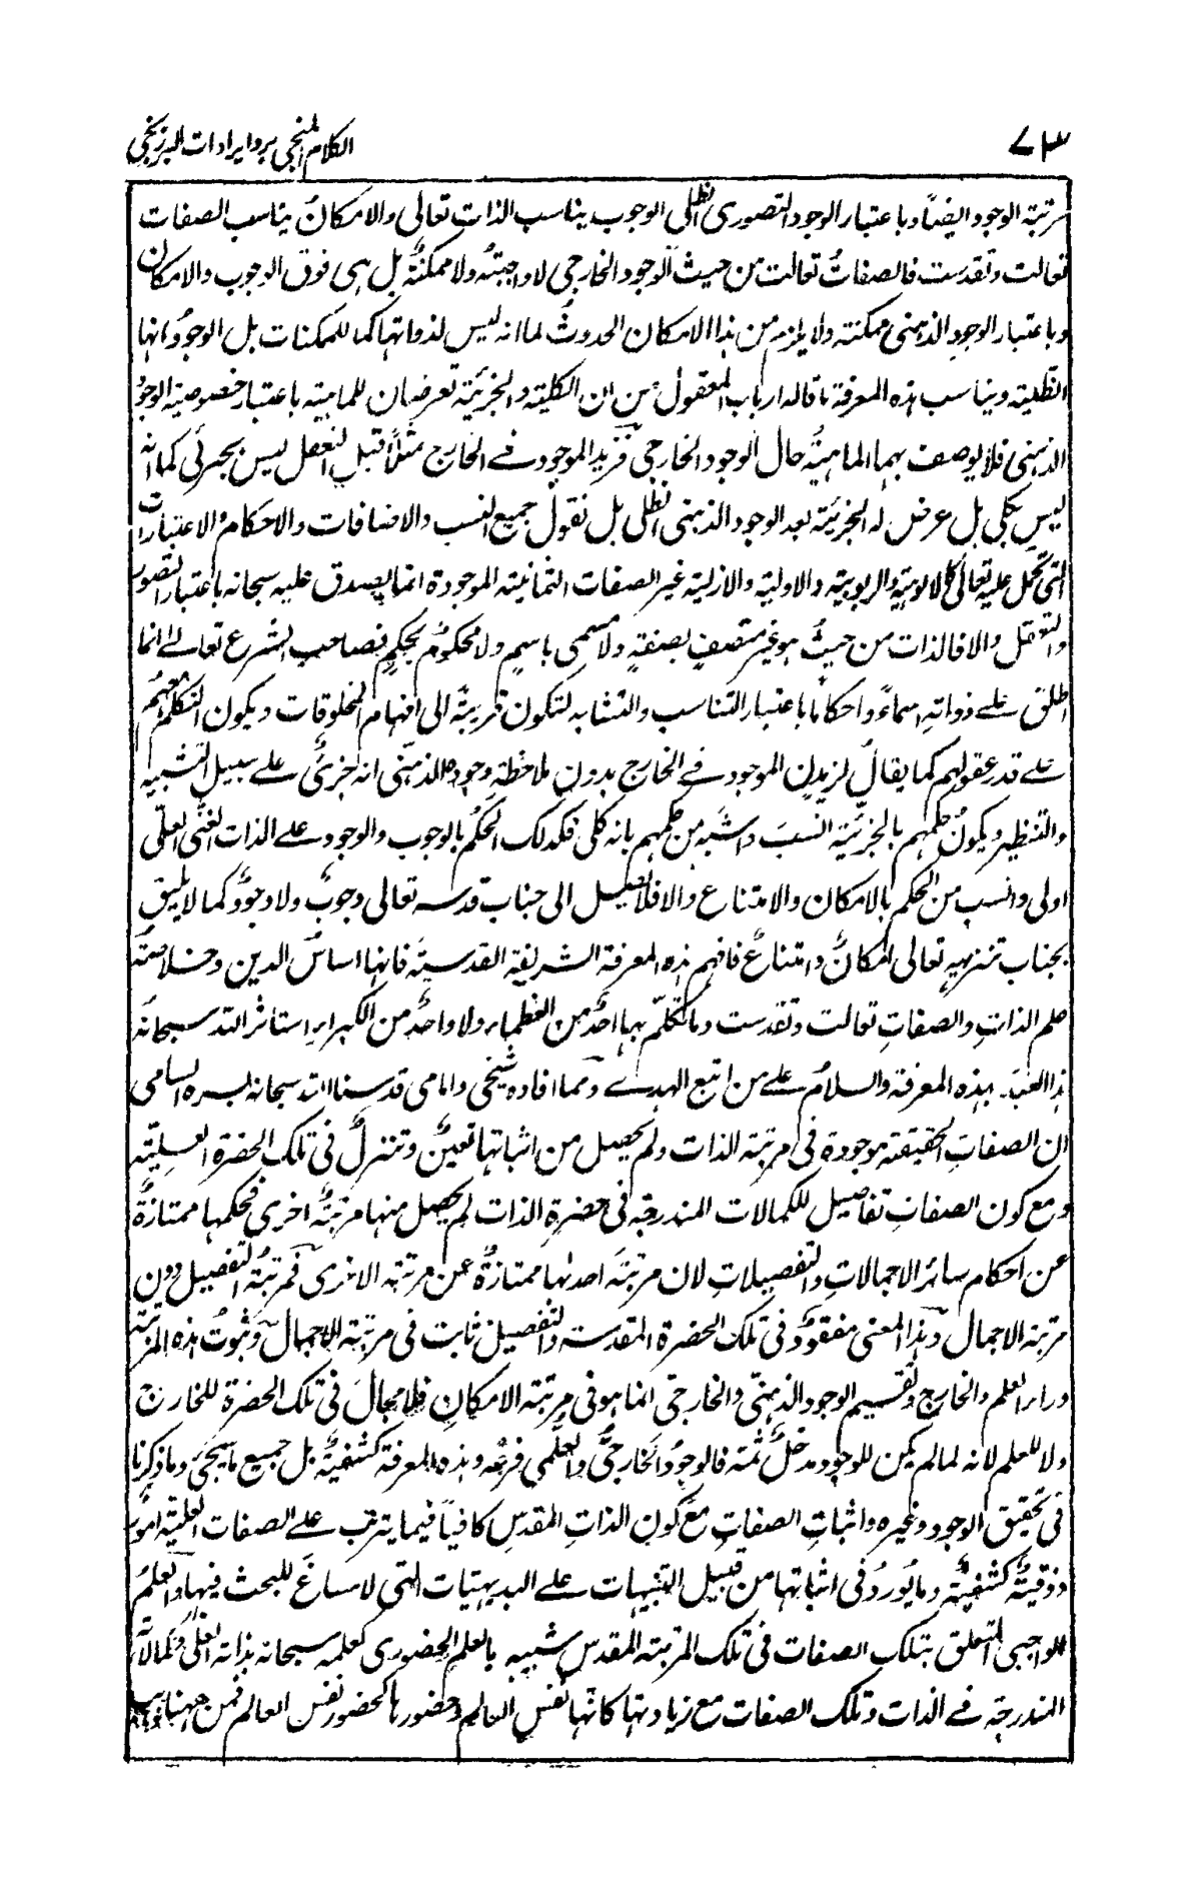 ٧٣
الكلام المنجى برد ايرادات البرزنجى
مرتبة الوجود ايضاً وباعتبار الوجود التصورى الظلى الوجوب يناسب الذات تعالى والامكانُ يناسب الصفات
تعالت وتقدست فالصفاتُ تعالت من حيث الوجود الخارجى لا واجبتهٌ ولا ممكنتهٌ بل هى فوق الوجوب والامكان
وباعتبار الوجود الذهنى ممكنته ولا يلزم من هذا الامكان الحدوثُ لما انه ليس لذواتها كما للممكنات بل الوجودانها
الظلية ويناسب هذه المعرفة ما قاله ارباب المعقول من ان الكلية والجزئية تعرضان للماهية باعتبار خصوصية الوجود
الذهنى فلا يوصف بهما الماهيةُ حال الوجود الخارجى فزيد الموجود فے الخارج مثلاً قبل التعقل ليس بجزئى كما انه
ليس بكلى بل عرض له الجزئية بعد الوجود الذهنى الظلى بل نقول جميع النسب والاضافات والاحكام والاعتبارات
التى تحمل عليه تعالى كالالوهية والربوبية والاولية والازلية غير الصفات الثمانية الموجودة انما يصدق عليه سبحانه باعتبار التصور
والتعقل والا فالذات من حيثُ هو غير متصفٍ بصفةٍ ولا مسمى باسمٍ ولا محكومٌ بحكمٍ فصاحب الشرع تعالے انما
اطلق علے ذواتهِ اسماءً واحكاما باعتبار التناسب والتشابه لتكون قريبةً الى افهام المخلوقات ويكون التكلم معهم
علے قدر عقولهم كما يقال لزيدٍ الموجود فے الخارج بدون ملاحظة وجوده الذهنى انه جزئىٌ علے سبيل التشبيه
والتنظير ويكونُ حكمهم بالجزئية انسبَ واشبه من حكمهم بانه كلى فكذلك الحكم بالوجوب والوجود علے الذات الغنى العلى
اولى وانسب من الحكم بالامكان والامتناع والا فلا يصل الى جناب قدسه تعالى وجوبٌ ولا وجودٌ كما لا يليق
بجناب تنزيهه تعالى امكانٌ وامتناعٌ فافهم هذه المعرفة الشريفة القدسية فانها اساسُ الدين وخلاصته
علم الذاتِ والصفاتِ تعالت وتقدست وما تكلّم بها احدٌ من العظماء ولا واحدٌ من الكبراء استاثر الله سبحانه
هذا العبدَ بهذه المعرفة والسلامُ علے من اتبع الهدے ومما افاده شيخى وامامى قدسنا الله سبحانه بسره السامى
ان الصفات الحقيقة موجودة فى مرتبة الذات ولم يحصل من اثباتها تعينٌ وتنزلٌ فى تلك الحضرة العليّة
ومع كون الصفات تفاصيل للكمالات المندرجة فى حضرةِ الذات لم يحصل منها مرتبةٌ اخرى فحكمها ممتازةٌ
عن احكام سائر الاجمالاتِ والتفصيلاتِ لان مرتبةَ احدٰها ممتازةٌ عن مرتبة الاخرى فمرتبةُ التفصيل دون
مرتبة الاجمال وهذا المعنى مفقودٌ فى تلك الحضرة المقدسة والتفصيل ثابت فى مرتبة الاجمال وثبوتُ هذه المرتبة
وراء العلم والخارج وتقسيم الوجود الذهنىّ والخارجى انما هو فى مرتبة الامكان فلا مجالَ فى تلك الحضرة للخارج
ولا للعلم لانه لما لم يكن للوجود مدخلٌ ثمة فالوجودُ الخارجىُّ والعلمى فرعُه وهذه المعرفة كشفيةٌ بل جميع ما يجئ وما ذكرنا
فى تحقيق الوجود وغيره واثبات الصفاتِ مع كون الذات المقدس كافياً فيما يترتب علے الصفات العلية امورٌ
ذوقيةٌ كشفيةٌ وما يُوردُ فى اثباتها من قبيل التنبيهات علے البديهيات التى لا مساغ للبحث فيها والعلمُ
الواجبى المتعلق بتلك الصفات فى تلك المرتبة المقدس شبيه بالعلم الحضورى كعلمه سبحانه بذاته العلى وكمالاته
المندرجة فے الذات وتلك الصفات مع زيادتها كانها نفس العالم وحضورها كحضور نفس العالم فمن ههنا